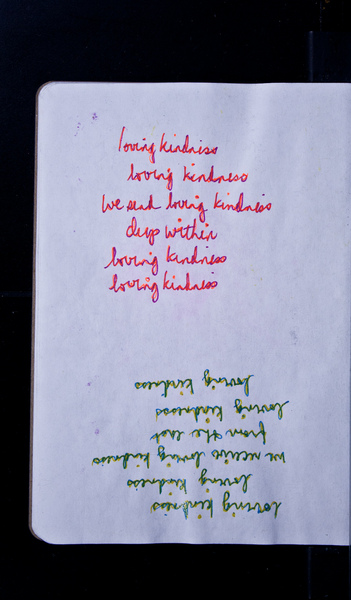 loving kindness
loving kindness
we send loving kindness
deep within
loving kindness
loving kindness
loving kindness
loving kindness
we receive loving kindness
from the east
loving kindness
loving kindness